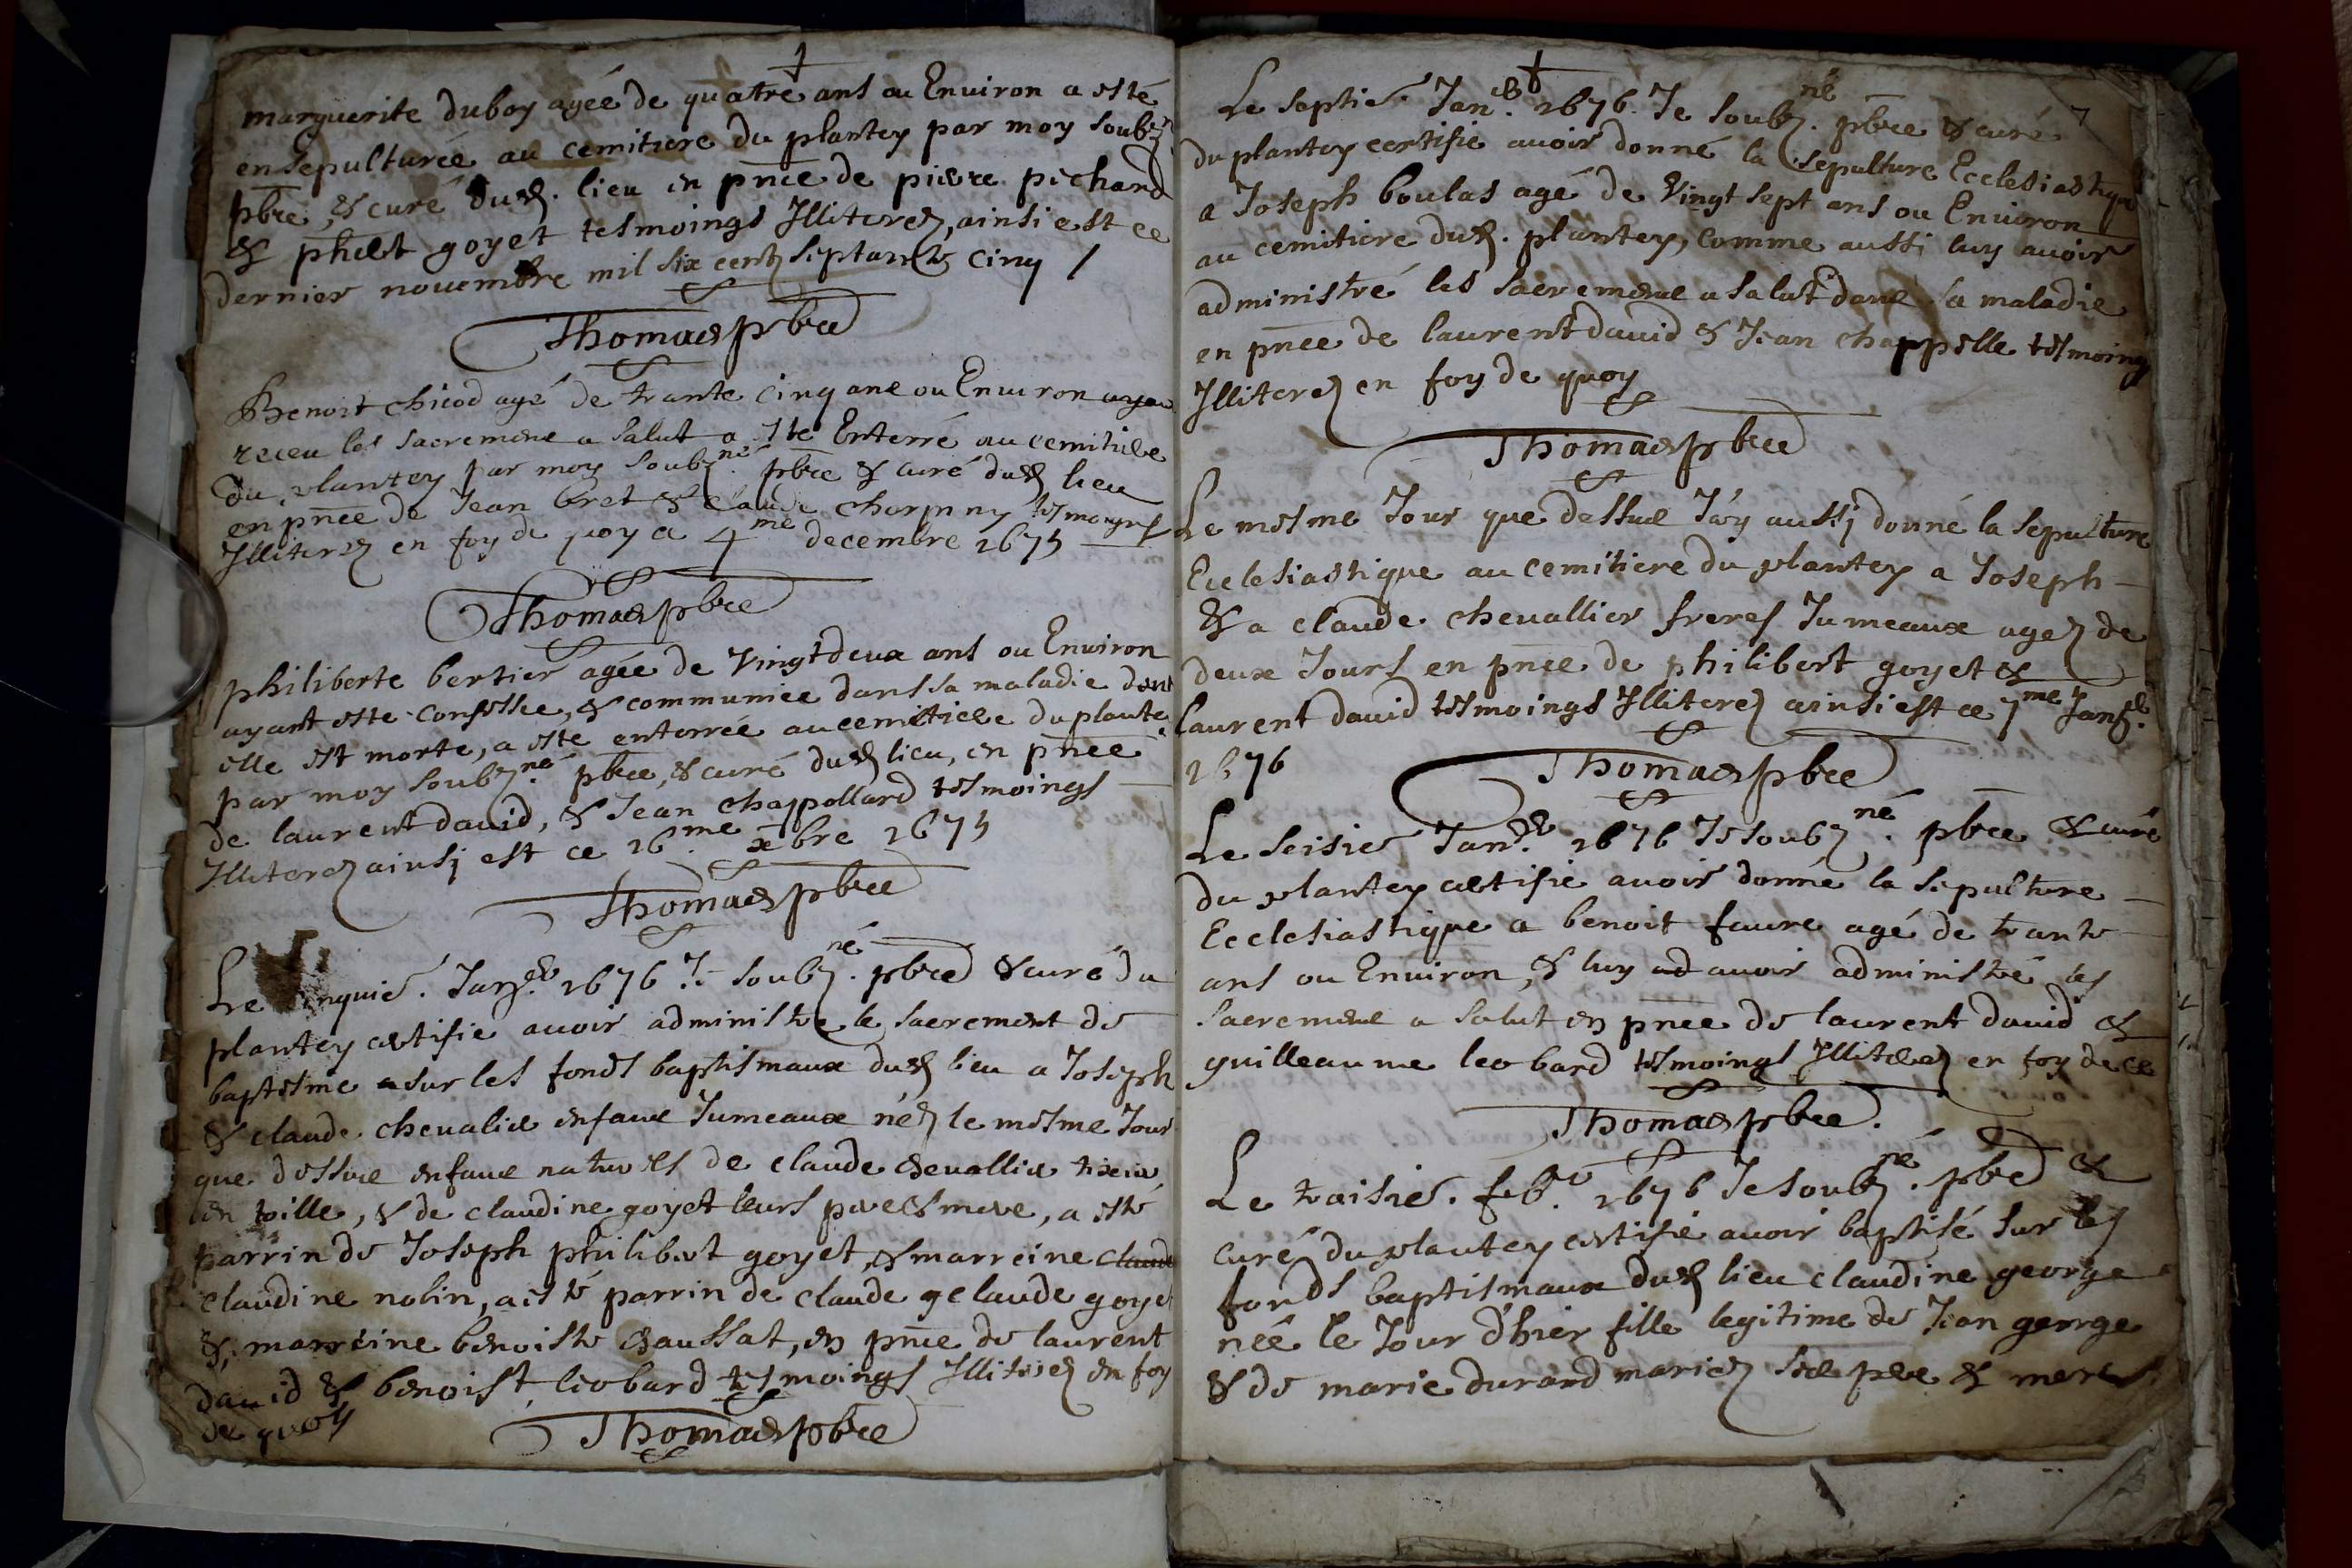 marguerite duboy agéé de quatre ans ou Environ a esté
ensepulturée au cemitiere du plantey par moy soubz
pbre, & curé dud. lieu en pnce de pierre pichard
& philbt goyet tesmoings Illiterez, ainsi est ce
dernier nouembre mil six centz septante cinq /
Thomas pbre
Benoit chicod agé de trante cinq ans ou Enuiron ayant
receu les sacremens a salut a esté Enterré au cemitiere
du plantey par moy soubzné pbre & curé dud lieu
en pnce de Jean bret & Claude tesmoings
Illiterez en foy de quoy ce 4me decembre 1675
Thomas pbre
philiberte bertier agée de Vingt deux ans ou Enuiron
ayant esté confessée, & communiee dans sa maladie dont
elle est morte, a esté enterrée au cemitiere du plantey
par moy soubzné pbre, & curé dud lieu, en pnce
de laurent dauid, & Jean chappollard tesmoings
Illiterez ainsj est ce 16me xbre 1675
Thomas pbre
Le cinquie. Janer 1676 Je soubzné. pbre & curé du
plantey certifie auoir administre le sacrement de
baptesme sur les fonds baptismaux dud lieu a Joseph
& claude cheualier enfans Jumeaux néz le mesme Jour
que dessus enfans naturels de claude cheuallier tixier
en toille, & de claudine goyet leurs pere & mere, a esté
parrin de Joseph philibert goyet, & marreine claude
claudine nolin, a esté parrin de claude claude goyet
& marreine benoiste chaussat, en pnce de laurent
dauid & benoist leobard tesmoings Illiterez en foy
de quoy
Thomas pbre
7
Le septie. Janer. 1676. Je soubzné. pbre & curé
du plantey certifie auoir donné la sepulture Ecclesiastique
a Joseph boulas agé de Vingt sept ans ou Enuiron
au cemitiere dud. plantey, comme aussi luy auoir
administré les sacremens a salut dans sa maladie
en pnce de laurent dauid & Jean chappelle tesmoings
Illiterez en foy de quoy
Thomas pbre
Le mesme Jour que dessus J'ay aussj donné la sepulture
Ecclesiastique au cemitiere du plantey a Joseph
& a claude cheuallier freres Jumeaux agez de
deux Jours en pnce de philibert goyet &
laurent dauid tesmoings Illiterez ainsi est ce 7me Janer.
1676
Thomas pbre
Le seisie Janer. 1676 Je soubzné. pbre & curé
du plantey certifie auoir donné la sepulture
Ecclesiastique a benoit faure agé de trante
ans ou Enuiron, & luy ad auoir administré les
sacremens a salut en pnce de laurent dauid &
guilleaume leobard tesmoings Illiterez en foy de ce
Thomas pbre.
Le traisie. febr. 1676 Je soubzné. pbre &
curé du plantey certifie auoir baptisé sur les
fonds baptismaux dud lieu claudine george
néé le Jour d'hier fille legitime de Jean george
& de marie durand mariez ses pere & mere